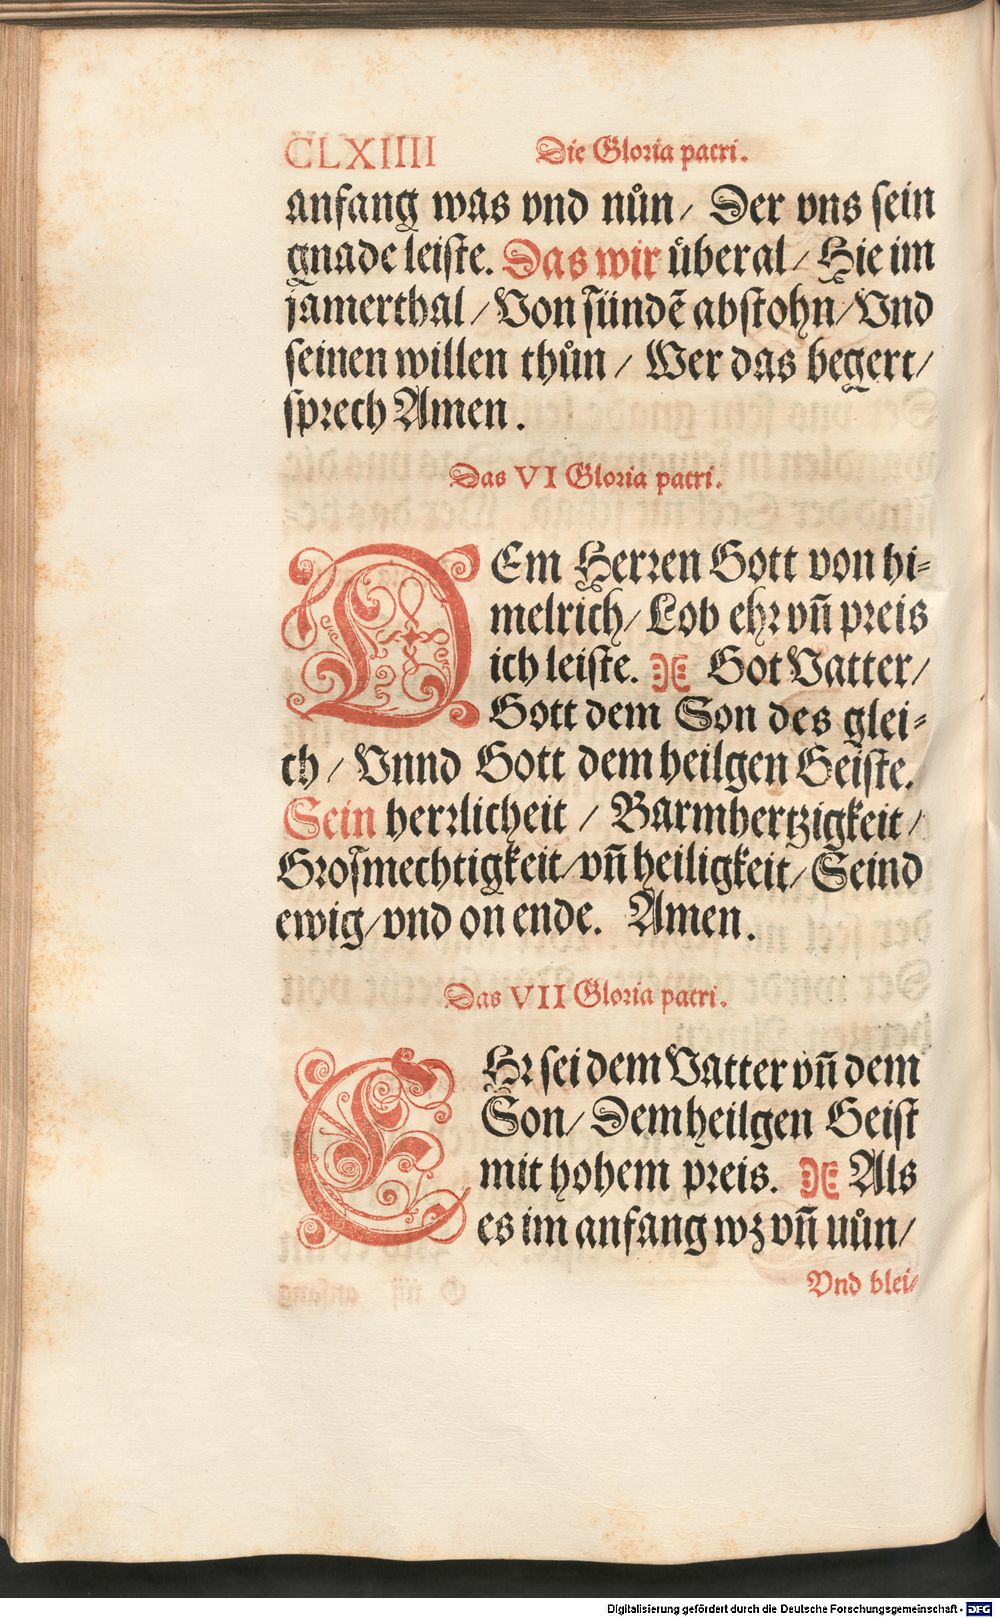 CLXIIII Die Gloria patri.
anfang was vnd nůn/ Der vns sein
gnade leiste. Das wir ůberal/ Hie im
jamerthal/ Von sündē abstohn/ Vnd
seinen willen thůn/ Wer das begert/
sprech Amen.
Das VI Gloria patri.
DEm Herren Gott von hi⸗
melrich/ Lob ehr vñ preis
ich leiste. Got Vatter/
Gott dem Son des glei⸗
ch/ Vnnd Gott dem heilgen Geiste.
Sein herrlicheit/ Barmhertzigkeit/
Grosmechtigkeit/ vñ heiligkeit/ Seind
ewig/ vnd on ende. Amen.
Das VII Gloria patri.
EHr sei dem Vatter vñ dem
Son/ Dem heilgen Geist
mit hohem preis. Als
es im anfang wz vñ nůn/
Vnd blei⸗
Digitalisierung gefördert durch die Deutsche Forschungsgemeinschaft - DFG